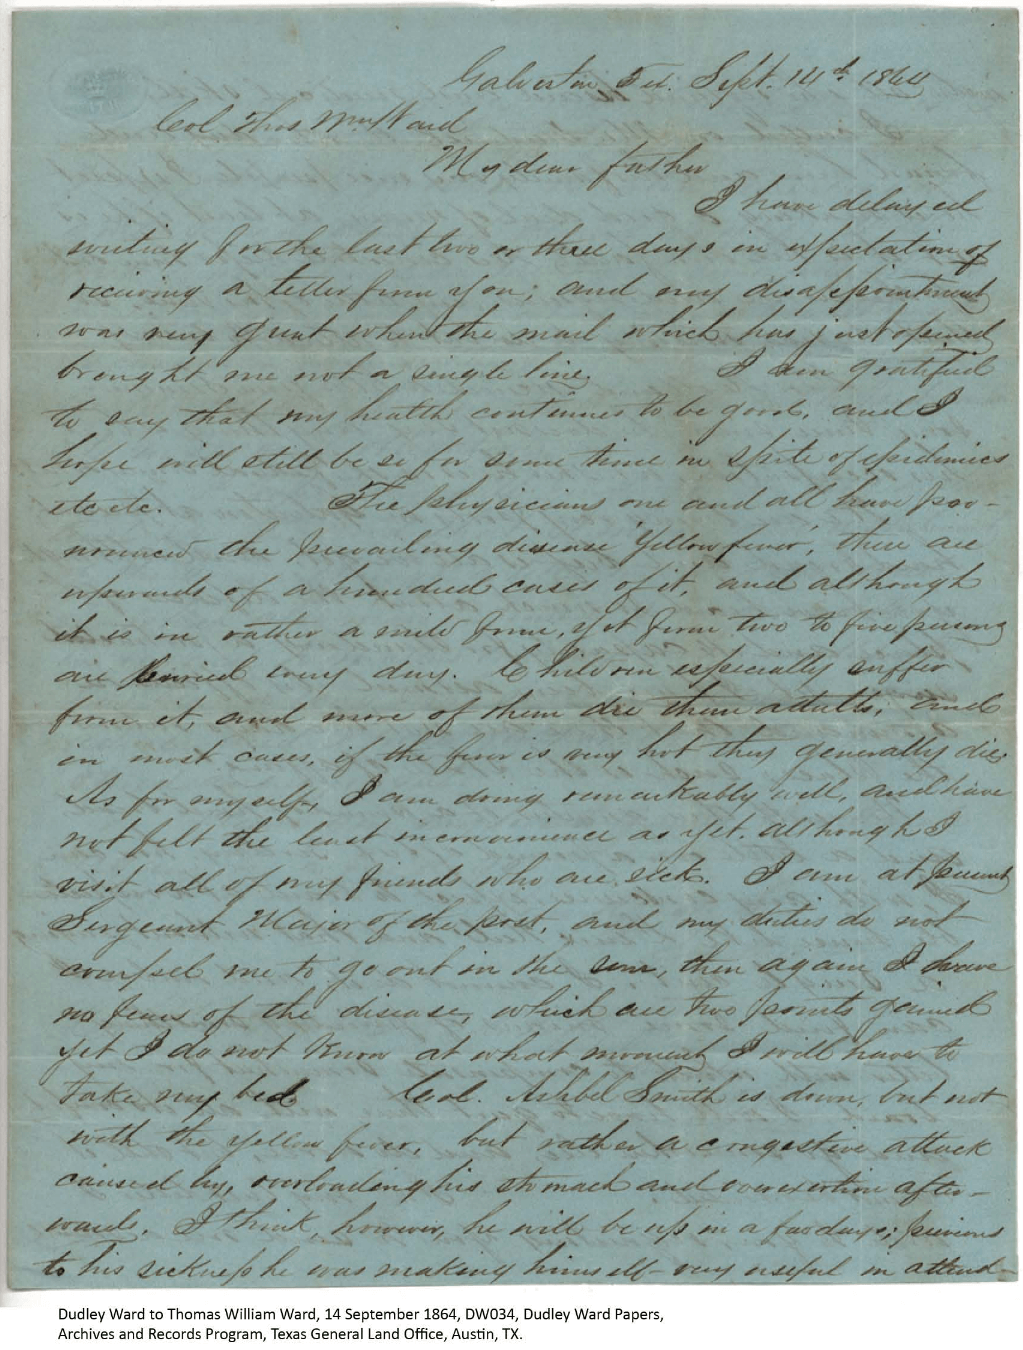 Galveston Tex. Sept. 14th 1864
Col Thos Wm Ward
My dear father
I have delayed
writing for the last two or three days in expectation of
receiving a letter from you; and my disappointment
was very great when the mail which has just opened
brought me not a single line. I am gratified
to say that my health continues to be good, and I
hope will still be so for some time in spite of epidemics
etc etc. The physicians one and all have pro-
nounced the prevailing disease 'Yellow fever', there are
upwards of a hundred cases of it, and although
it is in rather a mild form, yet from two to five persons
are buried every day. Children especially suffer
from it, and more of them die then adults, and
in most cases, if the fever is very hot they generally die.
As for myself, I am doing remarkably well, and have
not felt the least inconvenience as yet. although I
visit all of my friends who are sick. I am at present
Sergeant Major of the post, and my duties do not
compel me to go out in the sun, then again I have
no fears of the disease, which are two points gained
yet I do not know at what moment I will have to
take my bed Col. Ashbel Smith is down, but not
with the yellow fever, but rather a congestive attack
caused by, overloading his stomach and overexertion after-
wards. I think, however, he will be up in a few days; previous
to his sickness he was making himself very useful in attend-
Dudley Ward to Thomas William Ward, 14 September 1864, DW034, Dudley Ward Papers,
Archives and Records Program, Texas General Land Office, Austin, TX.